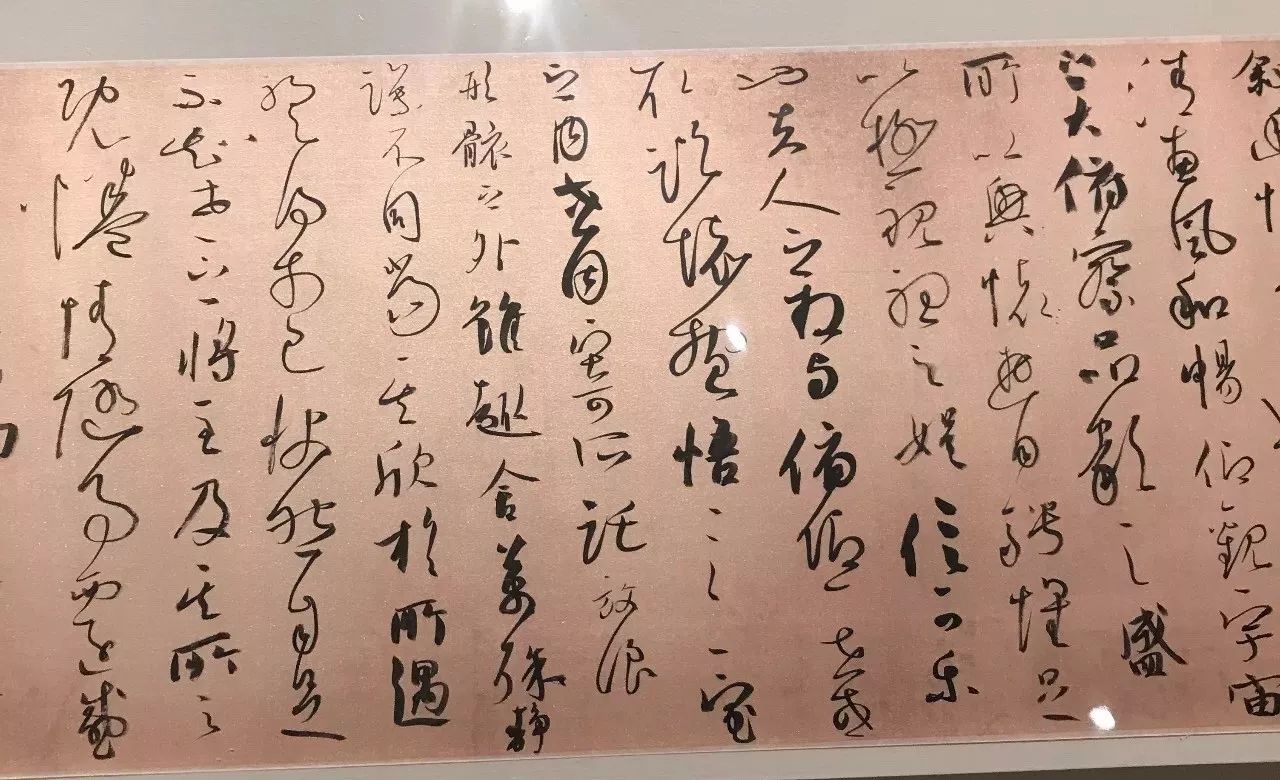 叙幽情
清惠風和暢仰觀宇宙
之大俯察品類之盛
所以興懷遊目騁懷足
以極視聽之娛信可樂
也夫人之相與俯仰一世或
取諸懷抱悟言一室
之內或因寄所託放浪
形骸之外雖趣舍萬殊靜
躁不同當其欣於所遇
暫得於己快然自足
不知老之將至及其所之
既惓情隨事遷感